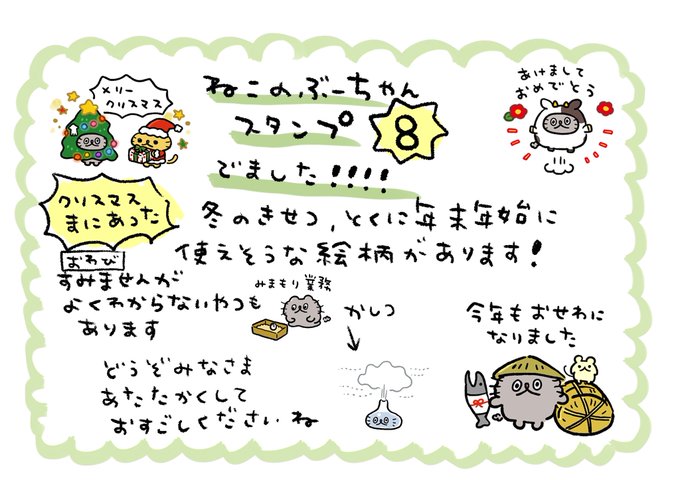 メリー
クリスマス
ねこのぶーちゃん
スタンプ 8
でました!!!!
あけまして
おめでとう
クリスマス
まにあった
冬のきせつ,とくに年末年始に
使えそうな絵柄があります!
おわび
すみませんが
よくわからないやつも
あります
みまもり業務
かしつ
今年もおせわに
なりました
どうぞみなさま
あたたかくして
おすごしくださいね